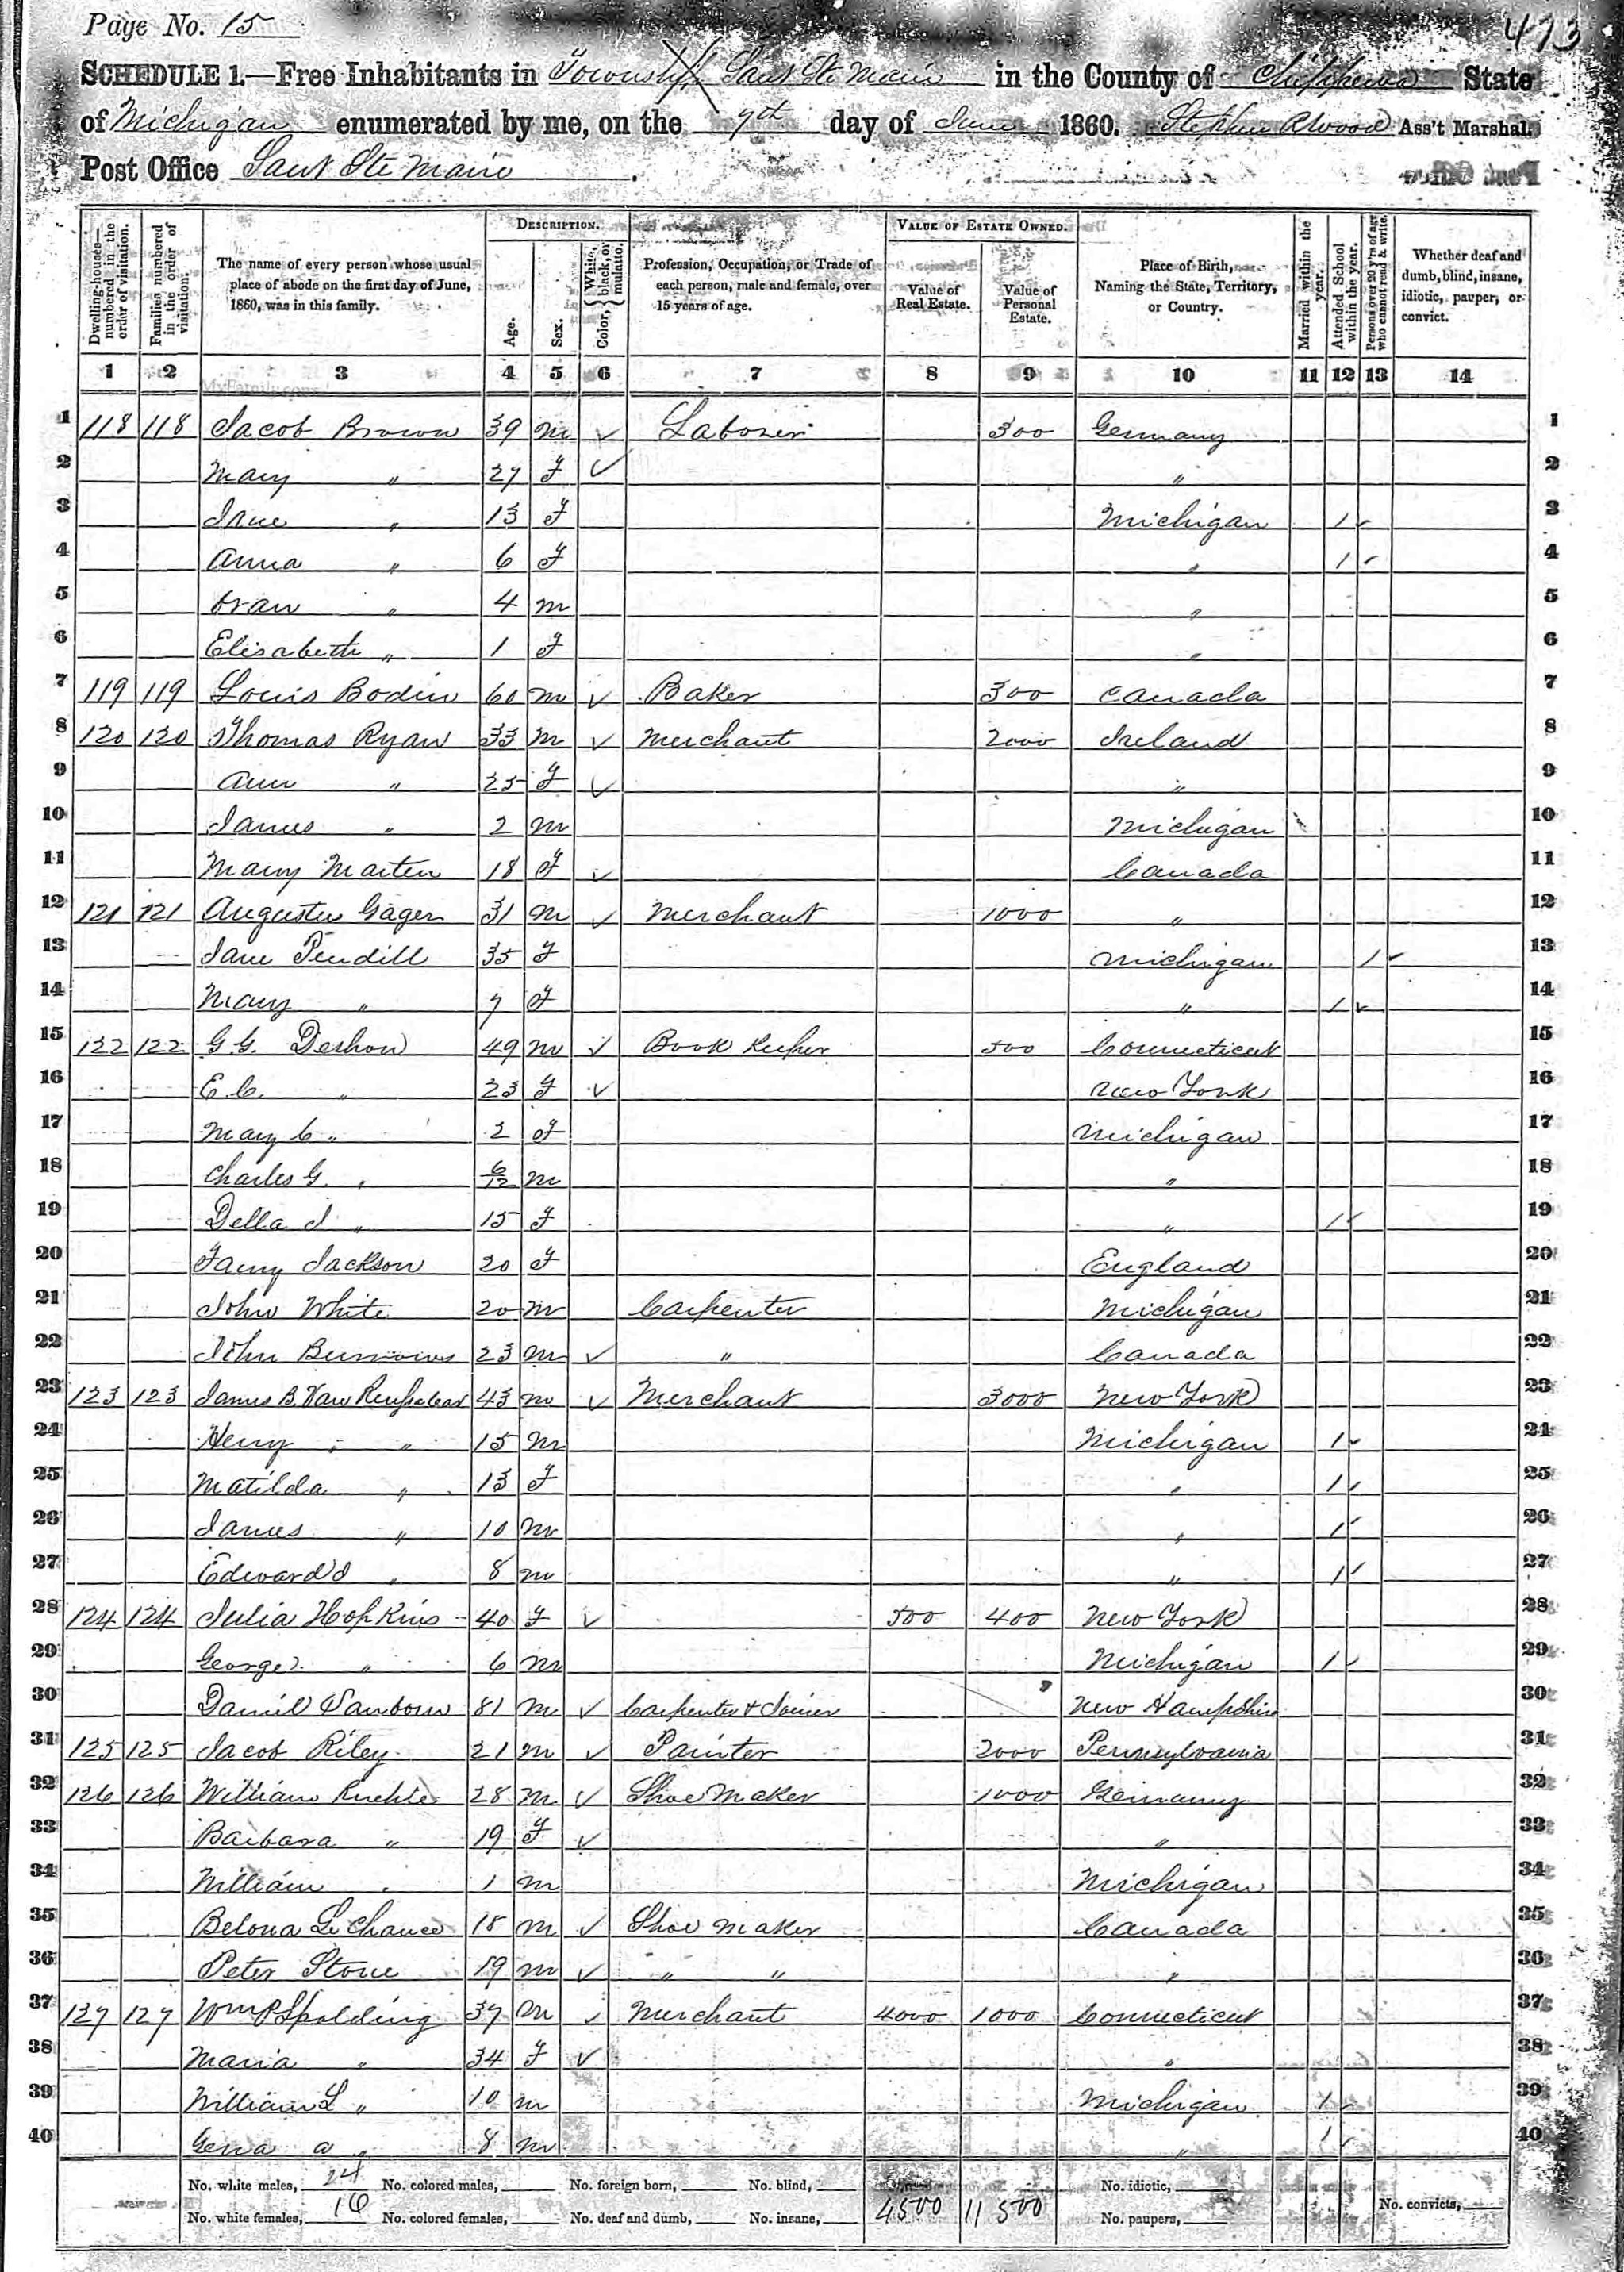 Page No. 15
473
SCHEDULE 1.—Free Inhabitants in Township Saut Ste Marie in the County of Chippewa State
of Michigan enumerated by me, on the 7th day of June 1860. Stephen Atwood Ass't Marshal.
Post Office Saut Ste Marie
Dwelling-houses—numbered in the order of visitation.
Families numbered in the order of visitation.
The name of every person whose usual place of abode on the first day of June, 1860, was in this family.
DESCRIPTION.
Age.
Sex.
Color, { White, black, or mulatto.
Profession, Occupation, or Trade of each person, male and female, over 15 years of age.
VALUE OF ESTATE OWNED.
Value of Real Estate.
Value of Personal Estate.
Place of Birth, Naming the State, Territory, or Country.
Married within the year.
Attended School within the year.
Persons over 20 y'rs of age who cannot read & write.
Whether deaf and dumb, blind, insane, idiotic, pauper, or convict.
1 2 3 4 5 6 7 8 9 10 11 12 13 14
1 118 118 Jacob Brown 39 m ✓ Laborer 300 Germany 1
2 Mary " 27 F ✓ " 2
3 Jane " 13 F Michigan 1 ✓ 3
4 Anna " 6 F " 1 ✓ 4
5 " 4 m " 5
6 Elisabeth " 1 F " 6
7 119 119 Louis Bodin 60 m ✓ Baker 300 Canada 7
8 120 120 Thomas Ryan 33 m ✓ Merchant 2000 Ireland 8
9 Ann " 25 F ✓ " 9
10 James " 2 m Michigan 10
11 Mary Marten 18 F ✓ Canada 11
12 121 121 Augustus Gager 31 m ✓ Merchant 1000 " 12
13 Jane Pendill 35 F Michigan 1 ✓ 13
14 Mary " 7 F " 1 ✓ 14
15 122 122 G. G. Deshon 49 m ✓ Book Keeper 500 Connecticut 15
16 E. C. " 23 F ✓ New York 16
17 Mary C " 2 F Michigan 17
18 Charles G. " 6/12 m " 18
19 Della J " 15 F " 1 ✓ 19
20 Fanny Jackson 20 F England 20
21 John White 20 m Carpenter Michigan 21
22 John Burrows 23 m ✓ " Canada 22
23 123 123 James B. Van 43 m ✓ Merchant 3000 New York 23
24 Henry " " 15 m Michigan 1 ✓ 24
25 Matilda " 13 F " 1 ✓ 25
26 James " 10 m " 1 ✓ 26
27 Edward J " 8 m " 1 ✓ 27
28 124 124 Julia Hopkins 40 F ✓ 500 400 New York 28
29 George " 6 m Michigan 1 ✓ 29
30 Daniel Sanborn 81 m ✓ Carpenter & Joiner New Hampshire 30
31 125 125 Jacob Riley 21 m ✓ Painter 2000 Pennsylvania 31
32 126 126 William Ruehle 28 m ✓ Shoe Maker 1000 Germany 32
33 Barbara " 19 F ✓ " 33
34 William " 1 m Michigan 34
35 Belona LeChance 18 m ✓ Shoe Maker Canada 35
36 Peter Stone 19 m ✓ " " " 36
37 127 127 Wm P Spalding 37 m ✓ Merchant 4000 1000 Connecticut 37
38 Maria " 34 F ✓ " 38
39 William L " 10 m Michigan 1 ✓ 39
40 a " 8 m " 1 ✓ 40
No. white males, 24 No. colored males, No. foreign born, No. blind, 4500 11500 No. idiotic, No. convicts,
No. white females, 16 No. colored females, No. deaf and dumb, No. insane, No. paupers,